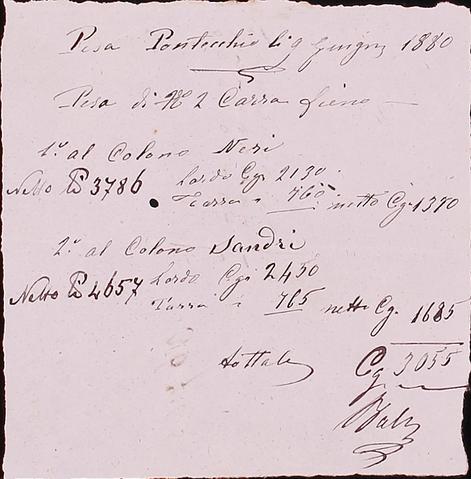 Pesa Pontecchio li 9 Giugno 1880
Pesa di No 2 Carra fieno
1º al Colono Neri
Lordo Cg. 2130
Netto 3786 Tarra " 760 netto Cg. 1370
2º al Colono Sandri
Netto 4657 Lordo Cgi 2450
Tarra " 765 netto Cg. 1685
tottale Cg. 3055